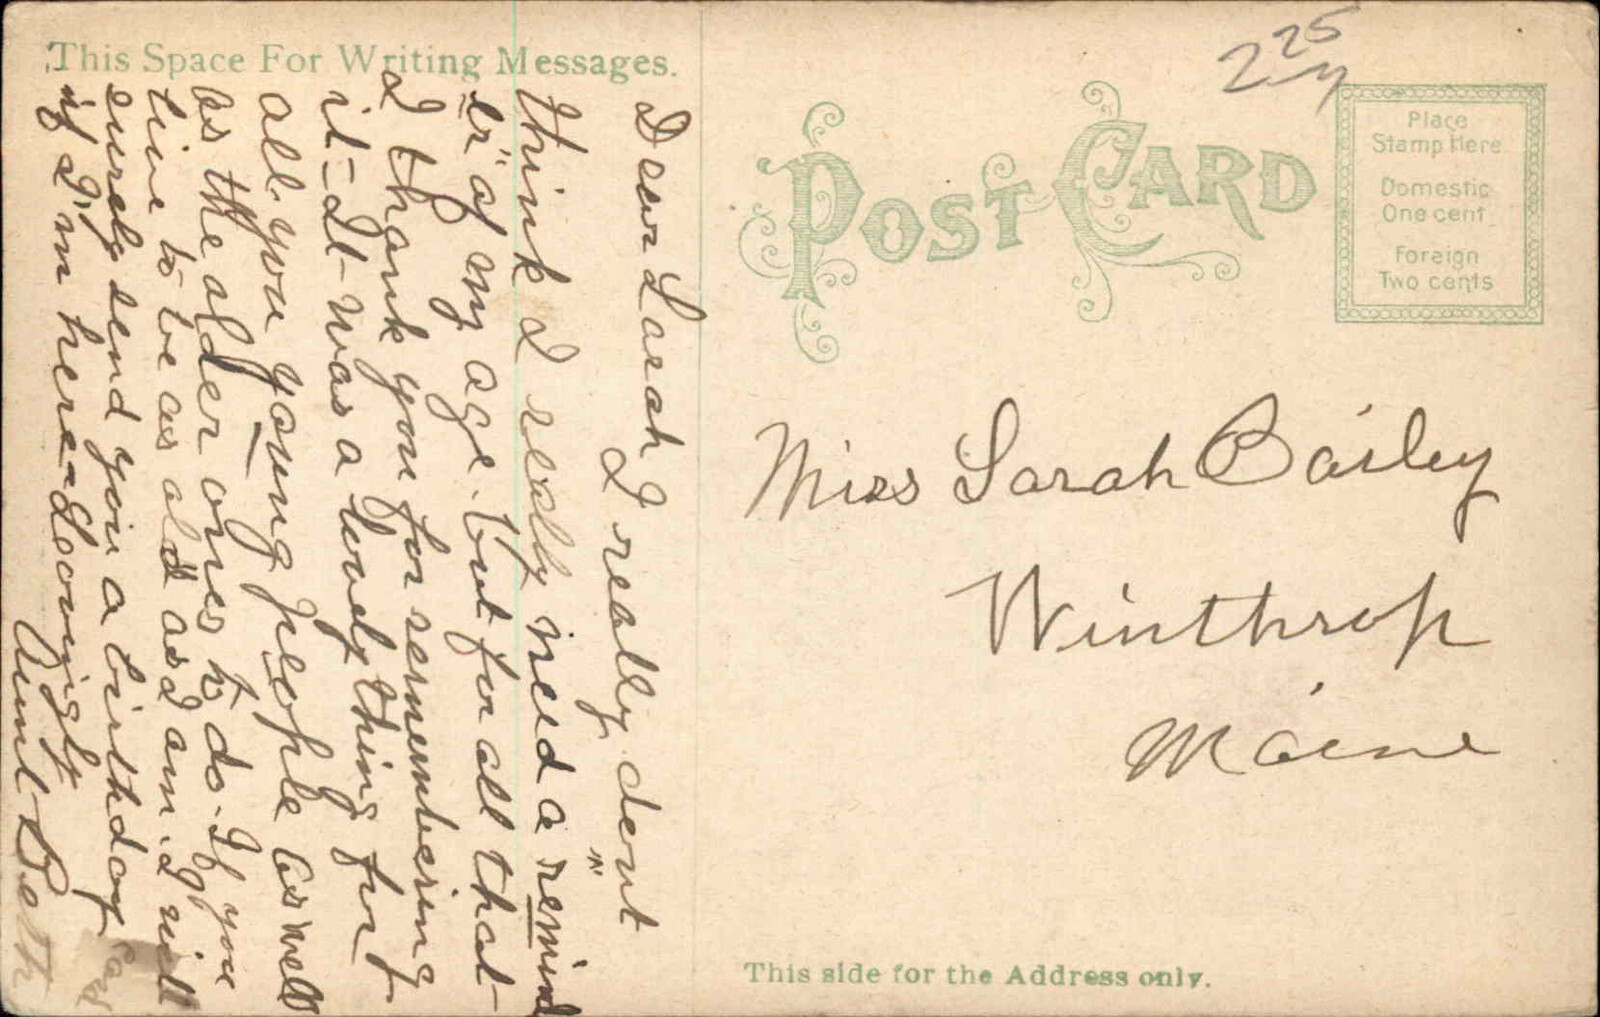 This Space For Writing Messages.
Dear Sarah
I really dont
think I really need a "remind
er" of my age. but for all that
I thank you for remembering
it - It was a lovely thing for
all you young people as well
as the older ones to do. If you
live to be as old as I am. I will
surely send you a birthday card
if I'm here - Lovingly
Aunt Beth
225
POST CARD
Place
Stamp Here
Domestic
One cent
Foreign
Two cents
Miss Sarah Bailey
Winthrop
Maine
This side for the Address only.